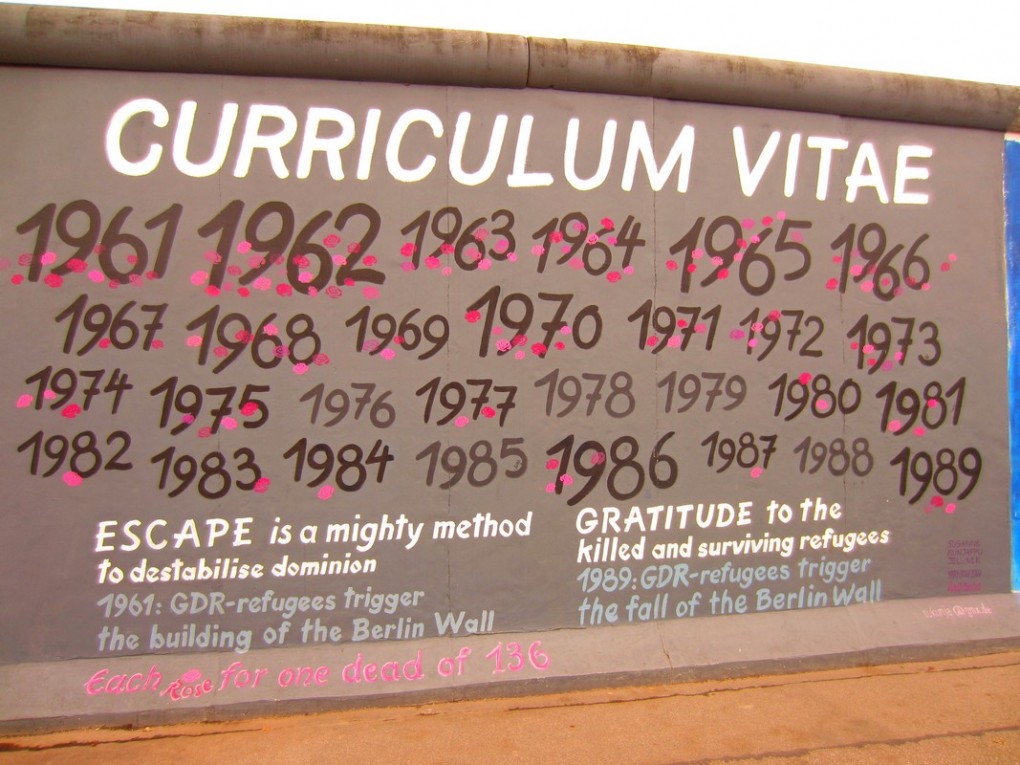 CURRICULUM VITAE
1961 1962 1963 1964 1965 1966
1967 1968 1969 1970 1971 1972 1973
1974 1975 1976 1977 1978 1979 1980 1981
1982 1983 1984 1985 1986 1987 1988 1989
ESCAPE is a mighty method
to destabilise dominion
1961: GDR-refugees trigger
the building of the Berlin Wall
GRATITUDE to the
killed and surviving refugees
1989: GDR-refugees trigger
the fall of the Berlin Wall
Each Rose for one dead of 136